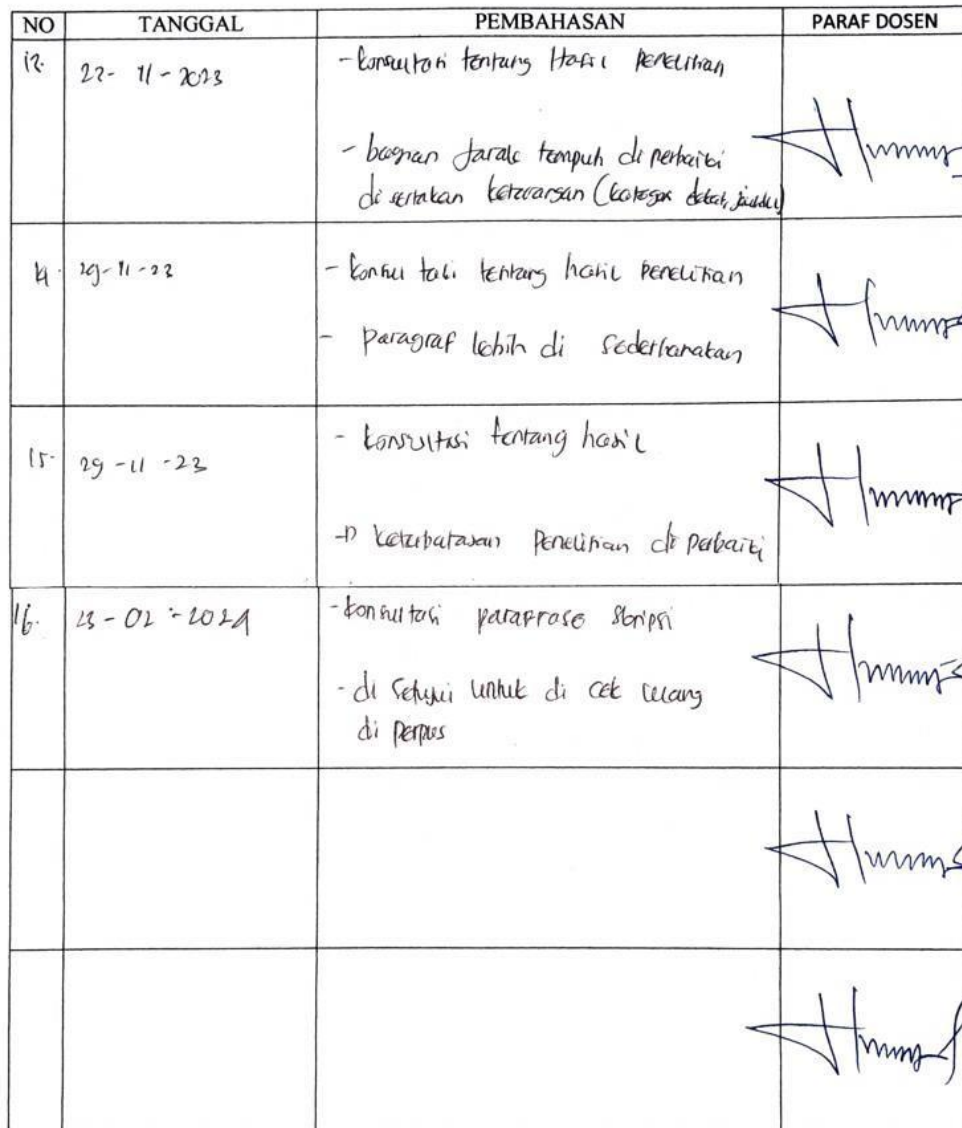 NO TANGGAL PEMBAHASAN PARAF DOSEN
13. 22-11-2023 - konsultasi tentang Hasil Penelitian
- bagian Jarak tempuh di perbaiki
di sertakan (kategori dekat, jauh)
14. 29-11-23 - konsultasi tentang hasil penelitian
- Paragraf lebih di sederhanakan
15. 29-11-23 - konsultasi tentang hasil
-D keterbatasan Penelitian di perbaiki
16. 23-02-2024 - konsultasi paraprase skripsi
- di Setujui untuk di cek ulang
di Perpus